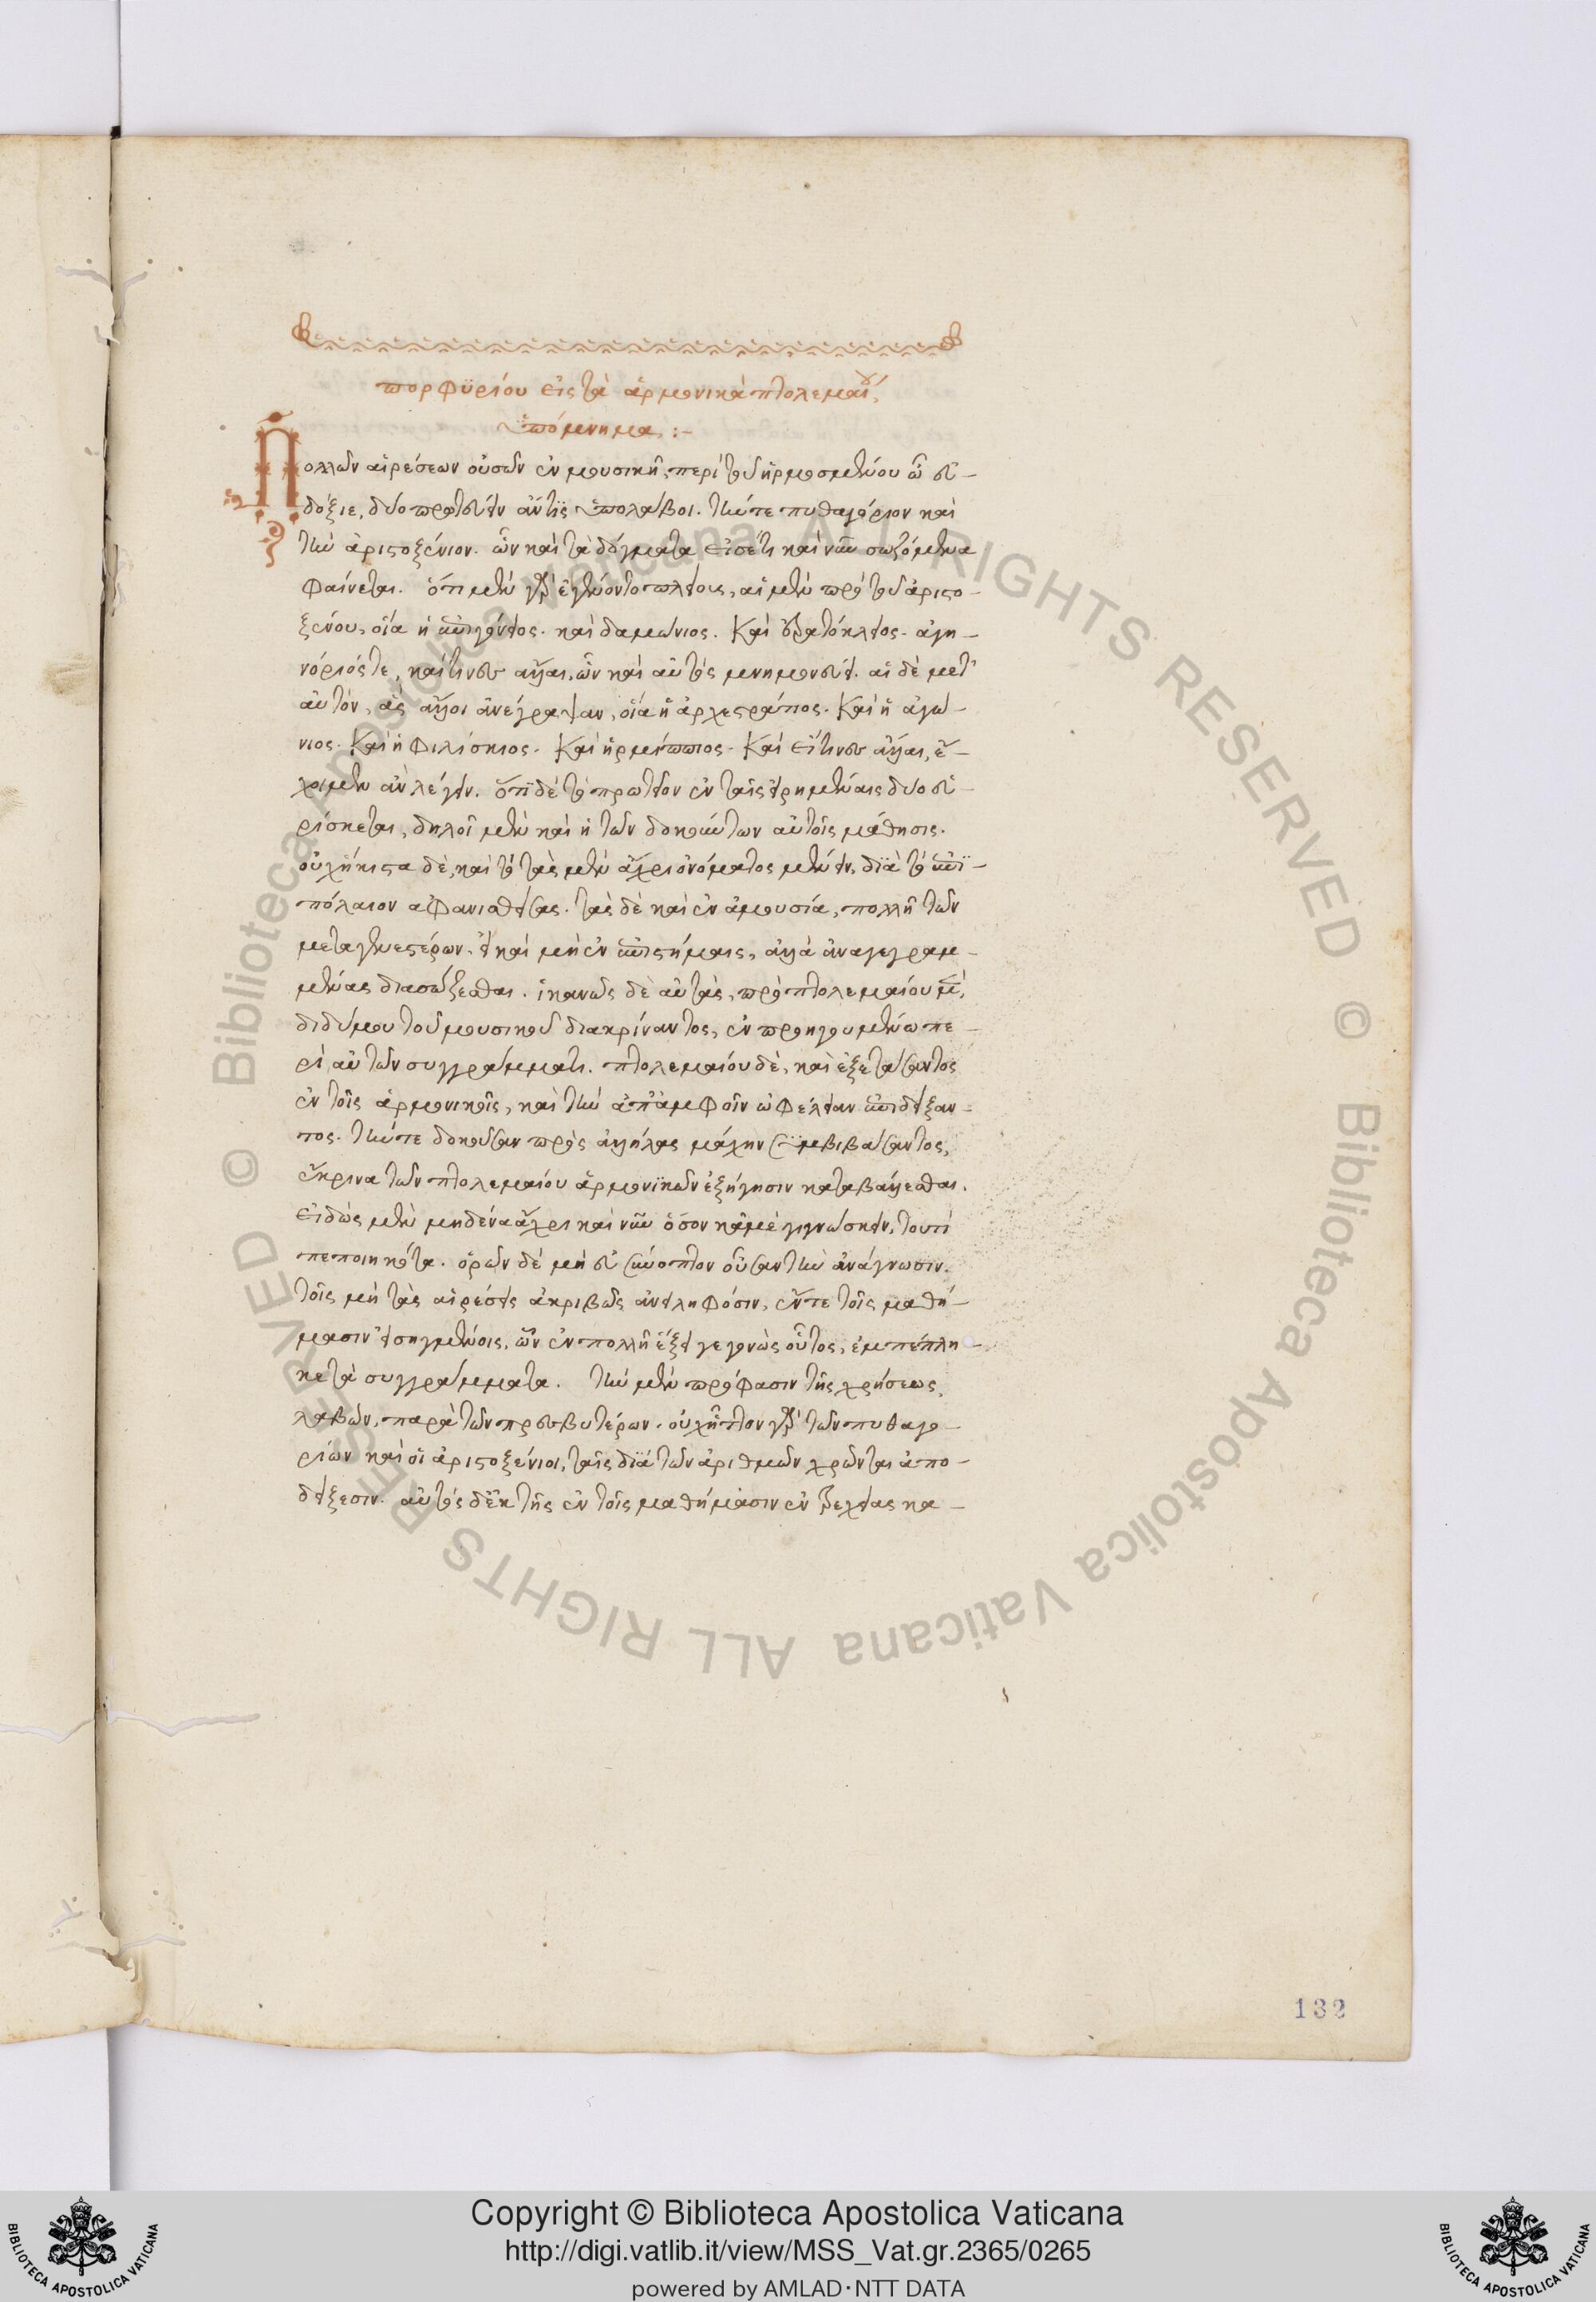 πορφϋρίου εἰς τὰ ἁρμονικὰ πτολεμαίου,
ὑπόμνημα :–
Πολλῶν αἱρέσεων οὐσῶν ἐν μουσικῇ, περὶ τοῦ ἡρμοσμένου ὦ εὐ–
δόξιε, δύο πρωτεύειν ἄν τϊς ὑπολάβοι. τήν τε πυθαγόρειον καὶ
τὴν ἀριστοξένιον. ὧν καὶ τὰ δόγματα εἰσέτι καὶ νῦν σωζόμενα
φαίνεται. ὅτι μὲν γὰρ ἐγένοντο πλείους, αἱ μὲν πρὸ τοῦ ἀριστο–
ξένου, οἵα ἡ ἐπιγόνειος. καὶ δαμώνιος. καὶ ἐρατόκλειος. ἀγη–
νόριός τε, καί τινες ἄλλαι, ὧν καὶ αὐτὸς μνημονεύει. αἱ δὲ μετ'
αὐτὸν, ἃς ἄλλοι ἀνέγραψαν, οἵα ἡ ἀρχεστράτιος. καὶ ἡ ἀγώ–
νιος. καὶ ἡ φιλίσκιος. καὶ ἡ ἑρμίππιος. καὶ εἴ τινες ἄλλαι, ἔ–
χοιμεν ἂν λέγειν. ὅτϊ δὲ τὸ πρωτεῖον ἐν ταῖς εἰρημέναις δύο εὑ–
ρίσκεται, δηλοῖ μὲν καὶ ἡ τῶν δοκούντων αὐτοῖς μάθησις.
οὐχ ἥκιστα δὲ, καὶ τὸ τὰς μὲν ἄχρι ὀνόματος μένειν, δϊὰ τὸ ἐπϊ–
πόλαιον ἀφανισθείσας. τὰς δὲ καὶ ἐν ἀμουσία, πολλῇ τῶν
μεταγενεστέρων. εἰ καὶ μὴ ἐν ἐπιστήμαις, ἀλλὰ ἀναγεγραμ–
μένας διασώζεσθαι. ἱκανῶς δὲ αὐτὰς, πρὸ πτολεμαίου μὲν,
διδύμου τοῦ μουσικοῦ διακρίναντος, ἐν προηγουμένω πε–
ρὶ αὐτῶν συγγράμματι. πτολεμαίου δὲ, καὶ ἐξετάσαντος
ἐν τοῖς ἁρμονικοῖς, καὶ τὴν ἀπ' ἀμφοῖν ὠφέλειαν ἐπιδείξαν–
τος. τήν τε δοκοῦσαν πρὸς ἀλλήλας μάχην συμβιβάσαντος,
ἔκρινα τῶν πτολεμαίου ἁρμονϊκῶν ἐξήγησιν καταβαλλέσθαι.
εἰδὼς μὲν μηδένα ἄχρι καὶ νῦν ὅσον κἀμὲ γιγνώσκειν, τουτὶ
πεποιηκότα. ὁρῶν δὲ μὴ εὐσύνοπτον οὖσαν τὴν ἀνάγνωσιν.
τοῖς μὴ τὰς αἱρέσεις ἀκριβῶς ἀνειληφόσιν, ἔν τε τοῖς μαθή–
μασιν εἰσηγμένοις, ὧν ἐν πολλῇ ἕξει γεγονὼς οὗτος, ἐμπέπλη–
κε τὰ συγγράμματα. τὴν μὲν πρόφασιν τῆς χρήσεως,
λαβὼν, παρὰ τῶν πρεσβυτέρων. οὐχ ἧττον γὰρ τῶν πυθαγο–
ρίων καὶ οἱ ἀριστοξένιοι, ταῖς δϊὰ τῶν ἀριθμῶν χρῶνται ἀπο–
δείξεσιν. αὐτὸς δὲ ἐκ τῆς ἐν τοῖς μαθήμασιν ἐντρεχείας κα–
132
Copyright © Biblioteca Apostolica Vaticana
http://digi.vatlib.it/view/MSS_Vat.gr.2365/0265
powered by AMLAD·NTT DATA
BIBLIOTECA APOSTOLICA VATICANA
BIBLIOTECA APOSTOLICA VATICANA
© Biblioteca Apostolica Vaticana ALL RIGHTS RESERVED © Biblioteca Apostolica Vaticana ALL RIGHTS RESERVED